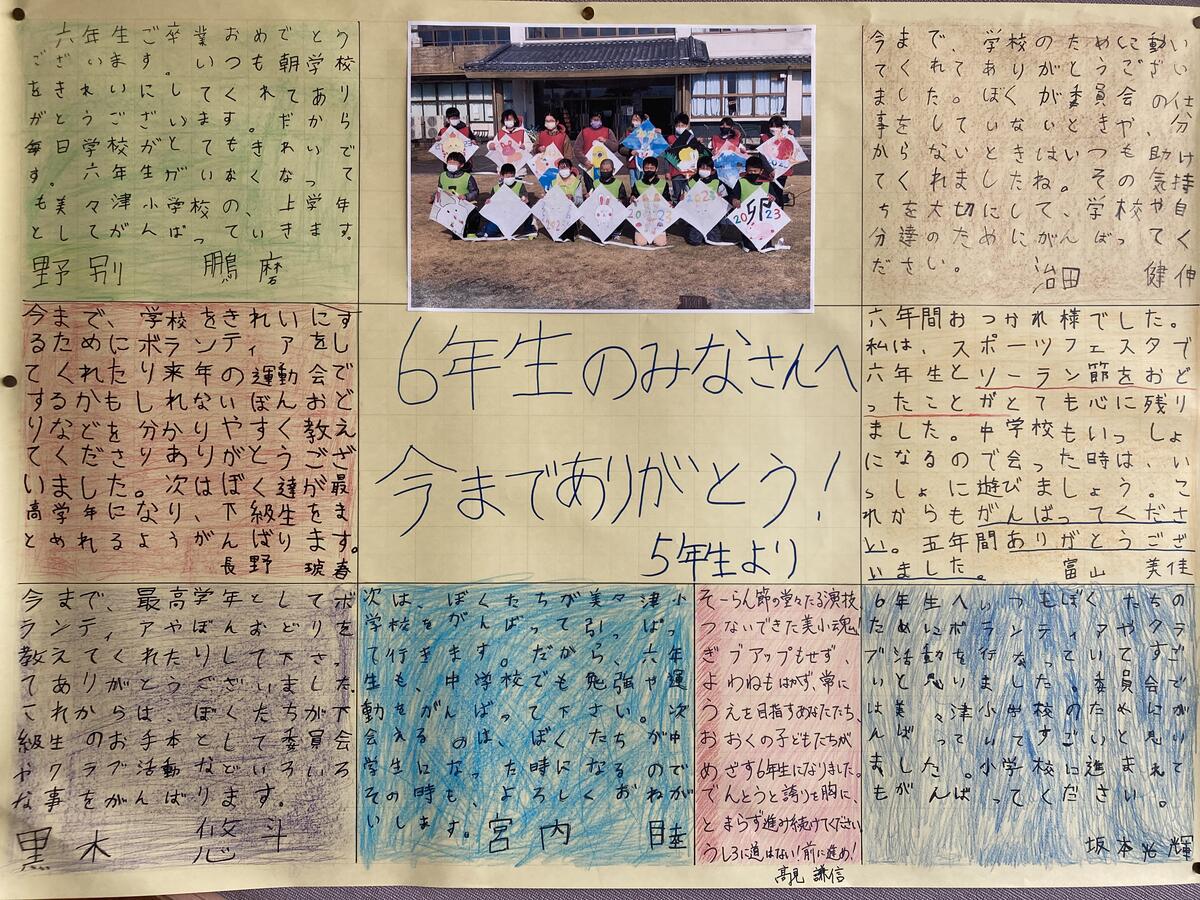 六年生ご卒業おめでとう
ございます。いつも朝学校
をきれいにしてくれてあり
がとうございます。だから
毎日学校がとてもきれいで
す。六年生がいなくなって
も美々津小学校の、上学年
としてがんばっていきます。
野別 鵬磨
2023
卯
2023
今まで、学校のために動い
てくれてありがとうござい
ました。ぼくが委員会の仕
事をしていないときや、分
からないときはいつも助け
てくれましたね。その気持
ちを大切にして、学校や自
分達のためにがんばってく
ださい。
治田 健伸
今まで、学校をきれいにす
るためにボランティアをし
てくれたり来年の運動会で
するかもしれないぼんおど
りなどを分かりやすく教え
てくださりありがとうござ
いました。次はぼく達が最
高学年になり、下級生をま
とめれるようがんばります。
長野 琥春
6年生のみなさんへ
今までありがとう!
5年生より
六年間おつかれ様でした。
私は、スポーツフェスタで
六年生とソーラン節をおど
ったことがとても心に残り
ました。中学校もいっしょ
になるので会った時は、い
っしょに遊びましょう。こ
れからもがんばってくださ
い。五年間ありがとうござ
いました。 富山 美佳
今まで、最高学年としてボ
ランティアやぼんおどりを
教えてくれたりして下さっ
てありがとうございました。
これからは、ぼくたちが下
級生のお手本として委員会
やクラブ活動などいろいろ
な事をがんばります。
黒木 悠斗
次は、ぼくたちが美々津小
学校をがんばって引っぱっ
て行きます。だから、六年
生も、中学校でも勉強や運
動をがんばって下さい。次
会えるのは、ぼくたちが中
学生になった時になるので
その時も、よろしくおねが
いします。 宮内 睦
そーらん節の堂々たる演技、
つないできた美小魂!
ぎブアップもせず、
よわねもはかず、常に
うえを目指すあなたたち、
おおくの子どもたちが
めざす6年生になりました。
でんとうと誇りを胸に、
とまらず進み続けてください
うしろに道はない!前に進め!
高見 謙信
6年生へいつもぼくたちの
ためにボランティアやクラ
ブ活動を行なっていてすご
いと思いました。委員会で
は美々津小学校のためにが
んばっていてすごいと思い
ました。小学校に進まれて
もがんばってください。
坂本光輝